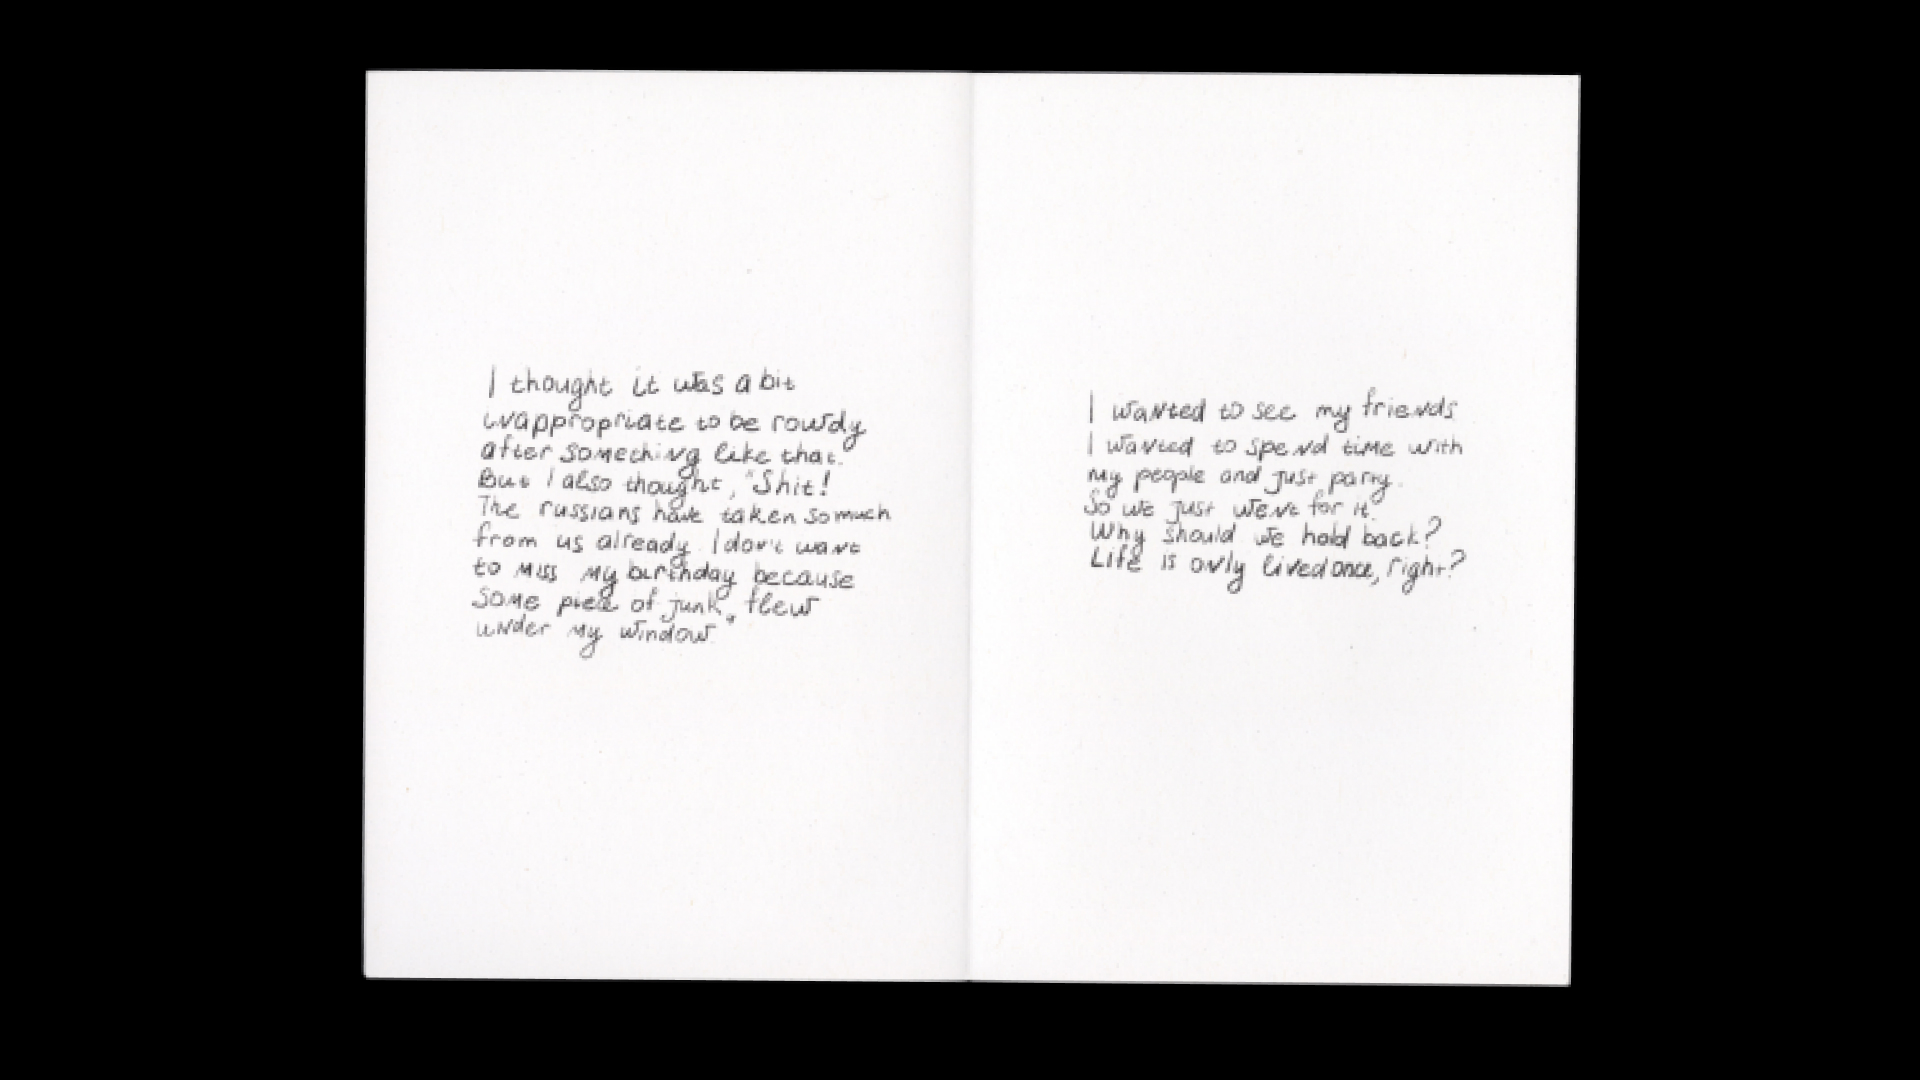 I thought it was a bit
inappropriate to be rowdy
after something like that.
But I also thought, "Shit!
The russians have taken so much
from us already. I don't want
to miss my birthday because
some piece of junk* flew
under my window"
I wanted to see my friends
I wanted to spend time with
my people and just party.
So we just went for it.
Why should we hold back?
Life is only lived once, right?